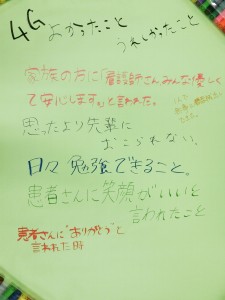 4G よかったこと
うれしかったこと
家族の方に「看護師さんみんな優しく
て安心します。」と言われた。
思ったより先輩に
おこられない。
日々勉強できること。
患者さんに笑顔がいいと
言われたこと
患者さんに"ありがとう"と
言われた時